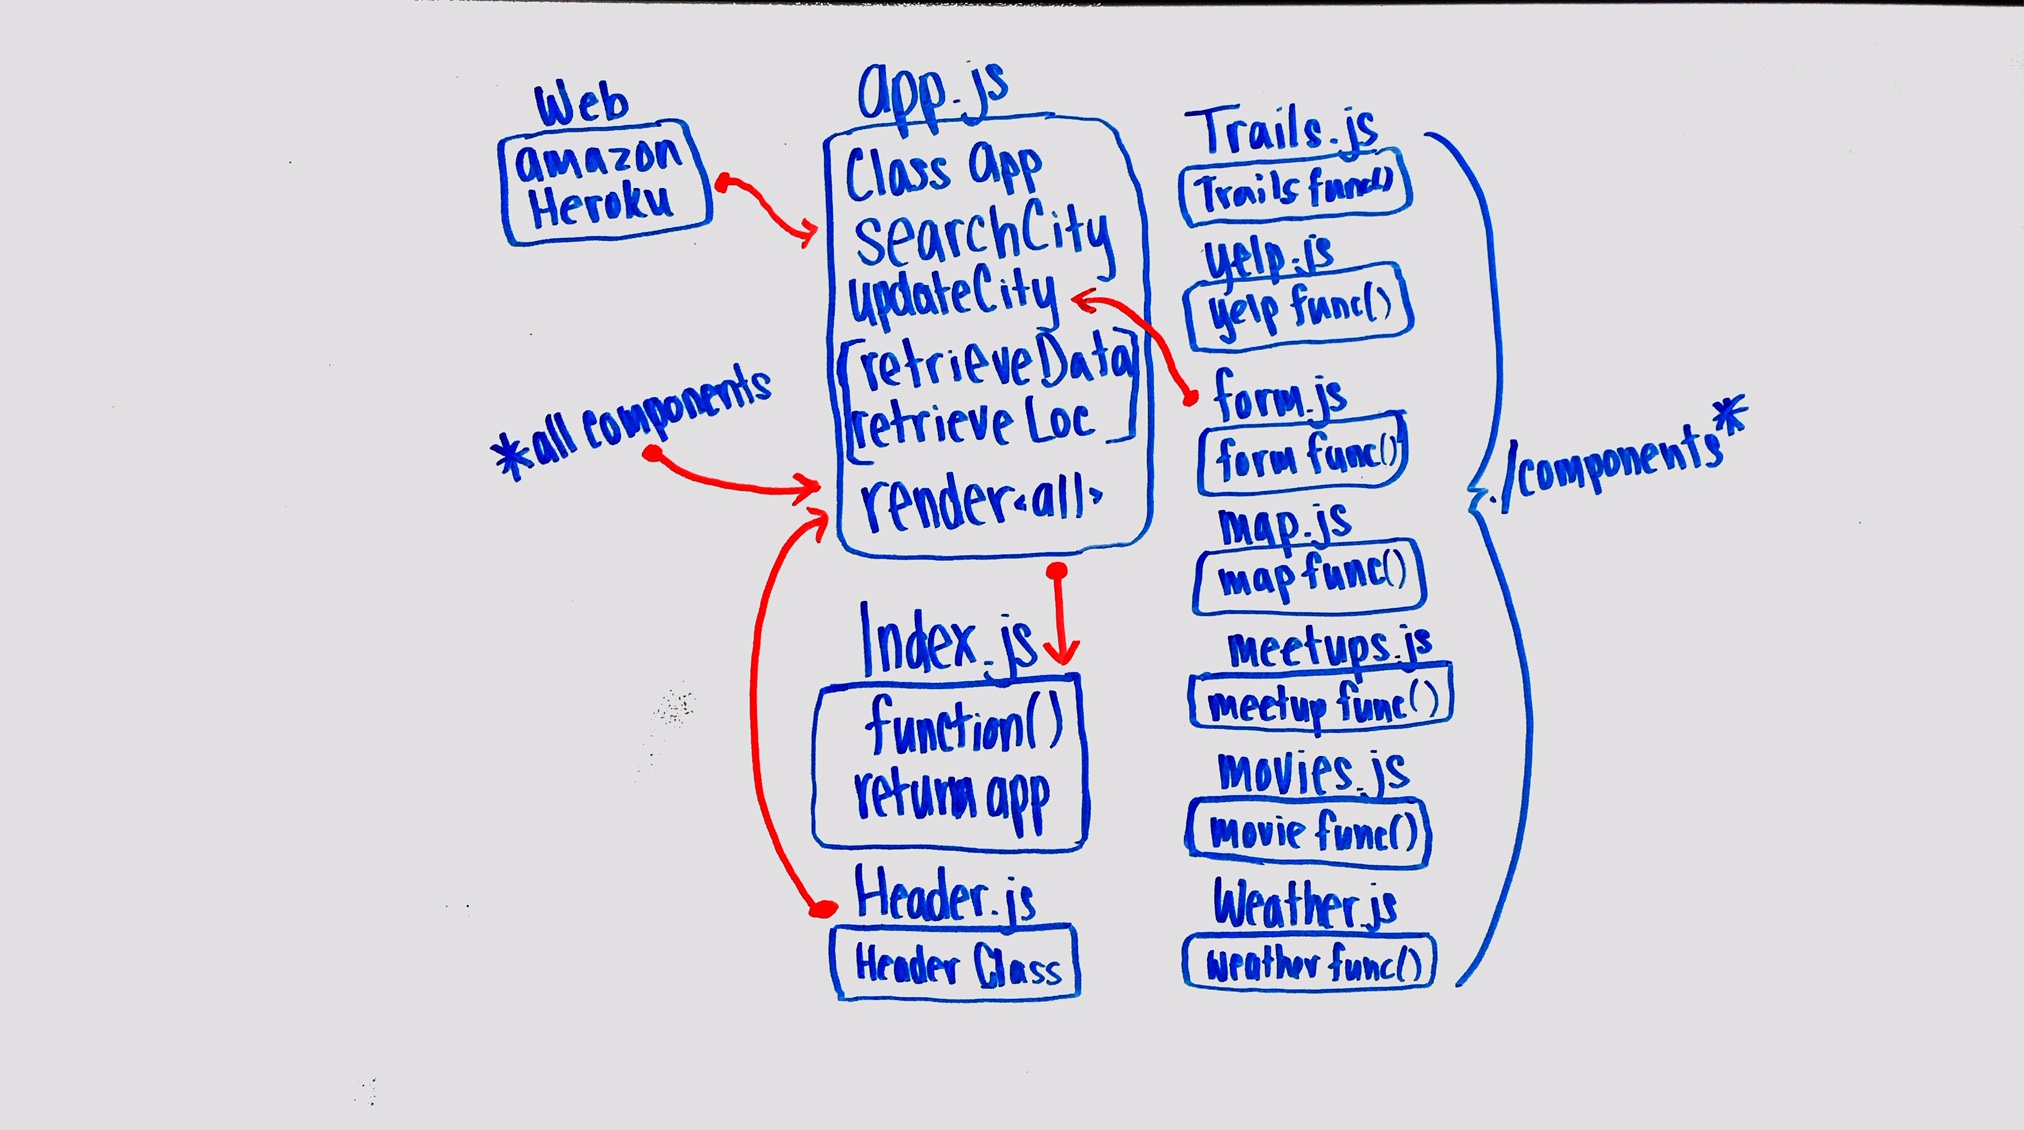 Web
amazon
Heroku
*all components
app.js
Class app
searchCity
updateCity
[retrieveData]
[retrieve Loc]
render<all>
Index.js
function()
return app
Header.js
Header Class
Trails.js
Trails func()
yelp.js
yelp func()
form.js
form func()
map.js
map func()
meetups.js
meetup func()
movies.js
movie func()
Weather.js
weather func()
./components*